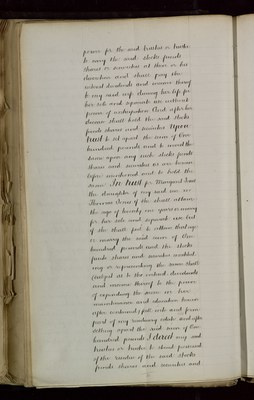 power for the said trustees or trustee
to vary the said stocks funds
shares or securities at their or his
discretion and shall pay the
interest dividends and income thereof
to my said wife during her life for
her sole and separate use without
power of anticipation And after her
decease shall hold the said stocks
funds shares and securities Upon
trust to set apart the sum of One
hundred pounds and to invest the
same upon any such stocks funds
shares and securities as are herein
before mentioned and to hold the
same In trust for Margaret Jane
the daughter of my said
Thomas if she shall attain
the age of twenty one years or marry
for her sole and separate use but
if she shall fail to attain that age
or marry the said sum of One
hundred pounds and the stocks
funds shares and securities
or representing the same shall
and the interest dividends
and income thereof to the power
of expending the same in her
maintenance and education herein
after contained fall into and form
part of my residuary estate and after
setting apart the said sum of One
hundred pounds I direct my said
trustees or trustee to stand possessed
of the residue of the said stocks
funds shares and securities and